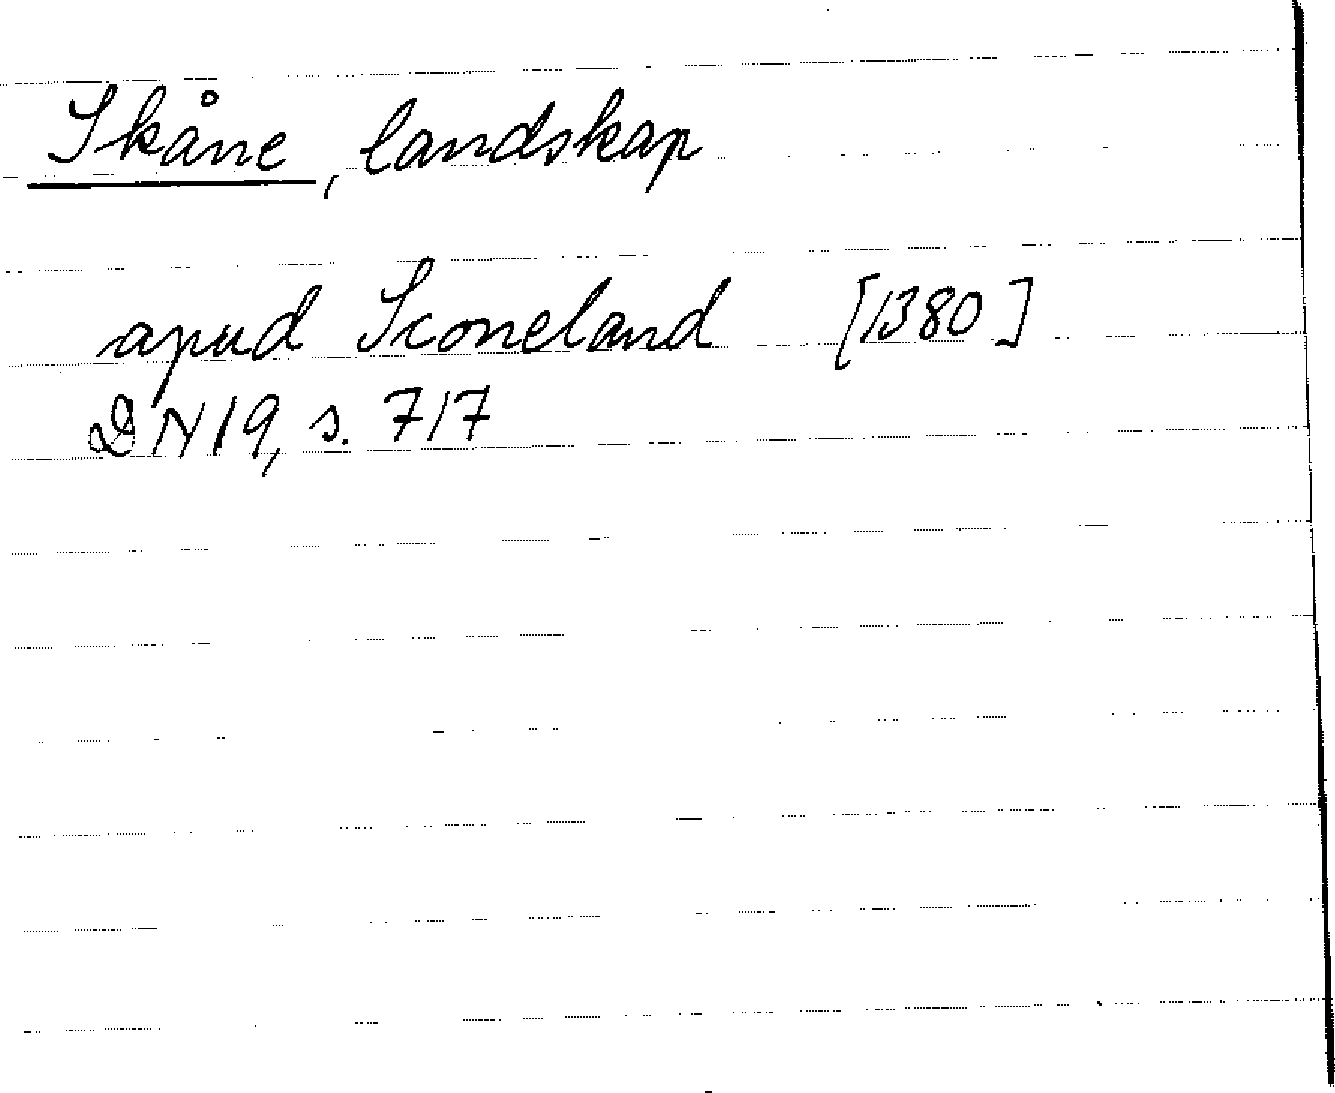 Skåne, landskap
apud Sconeland [1380]
DN 19, s. 717